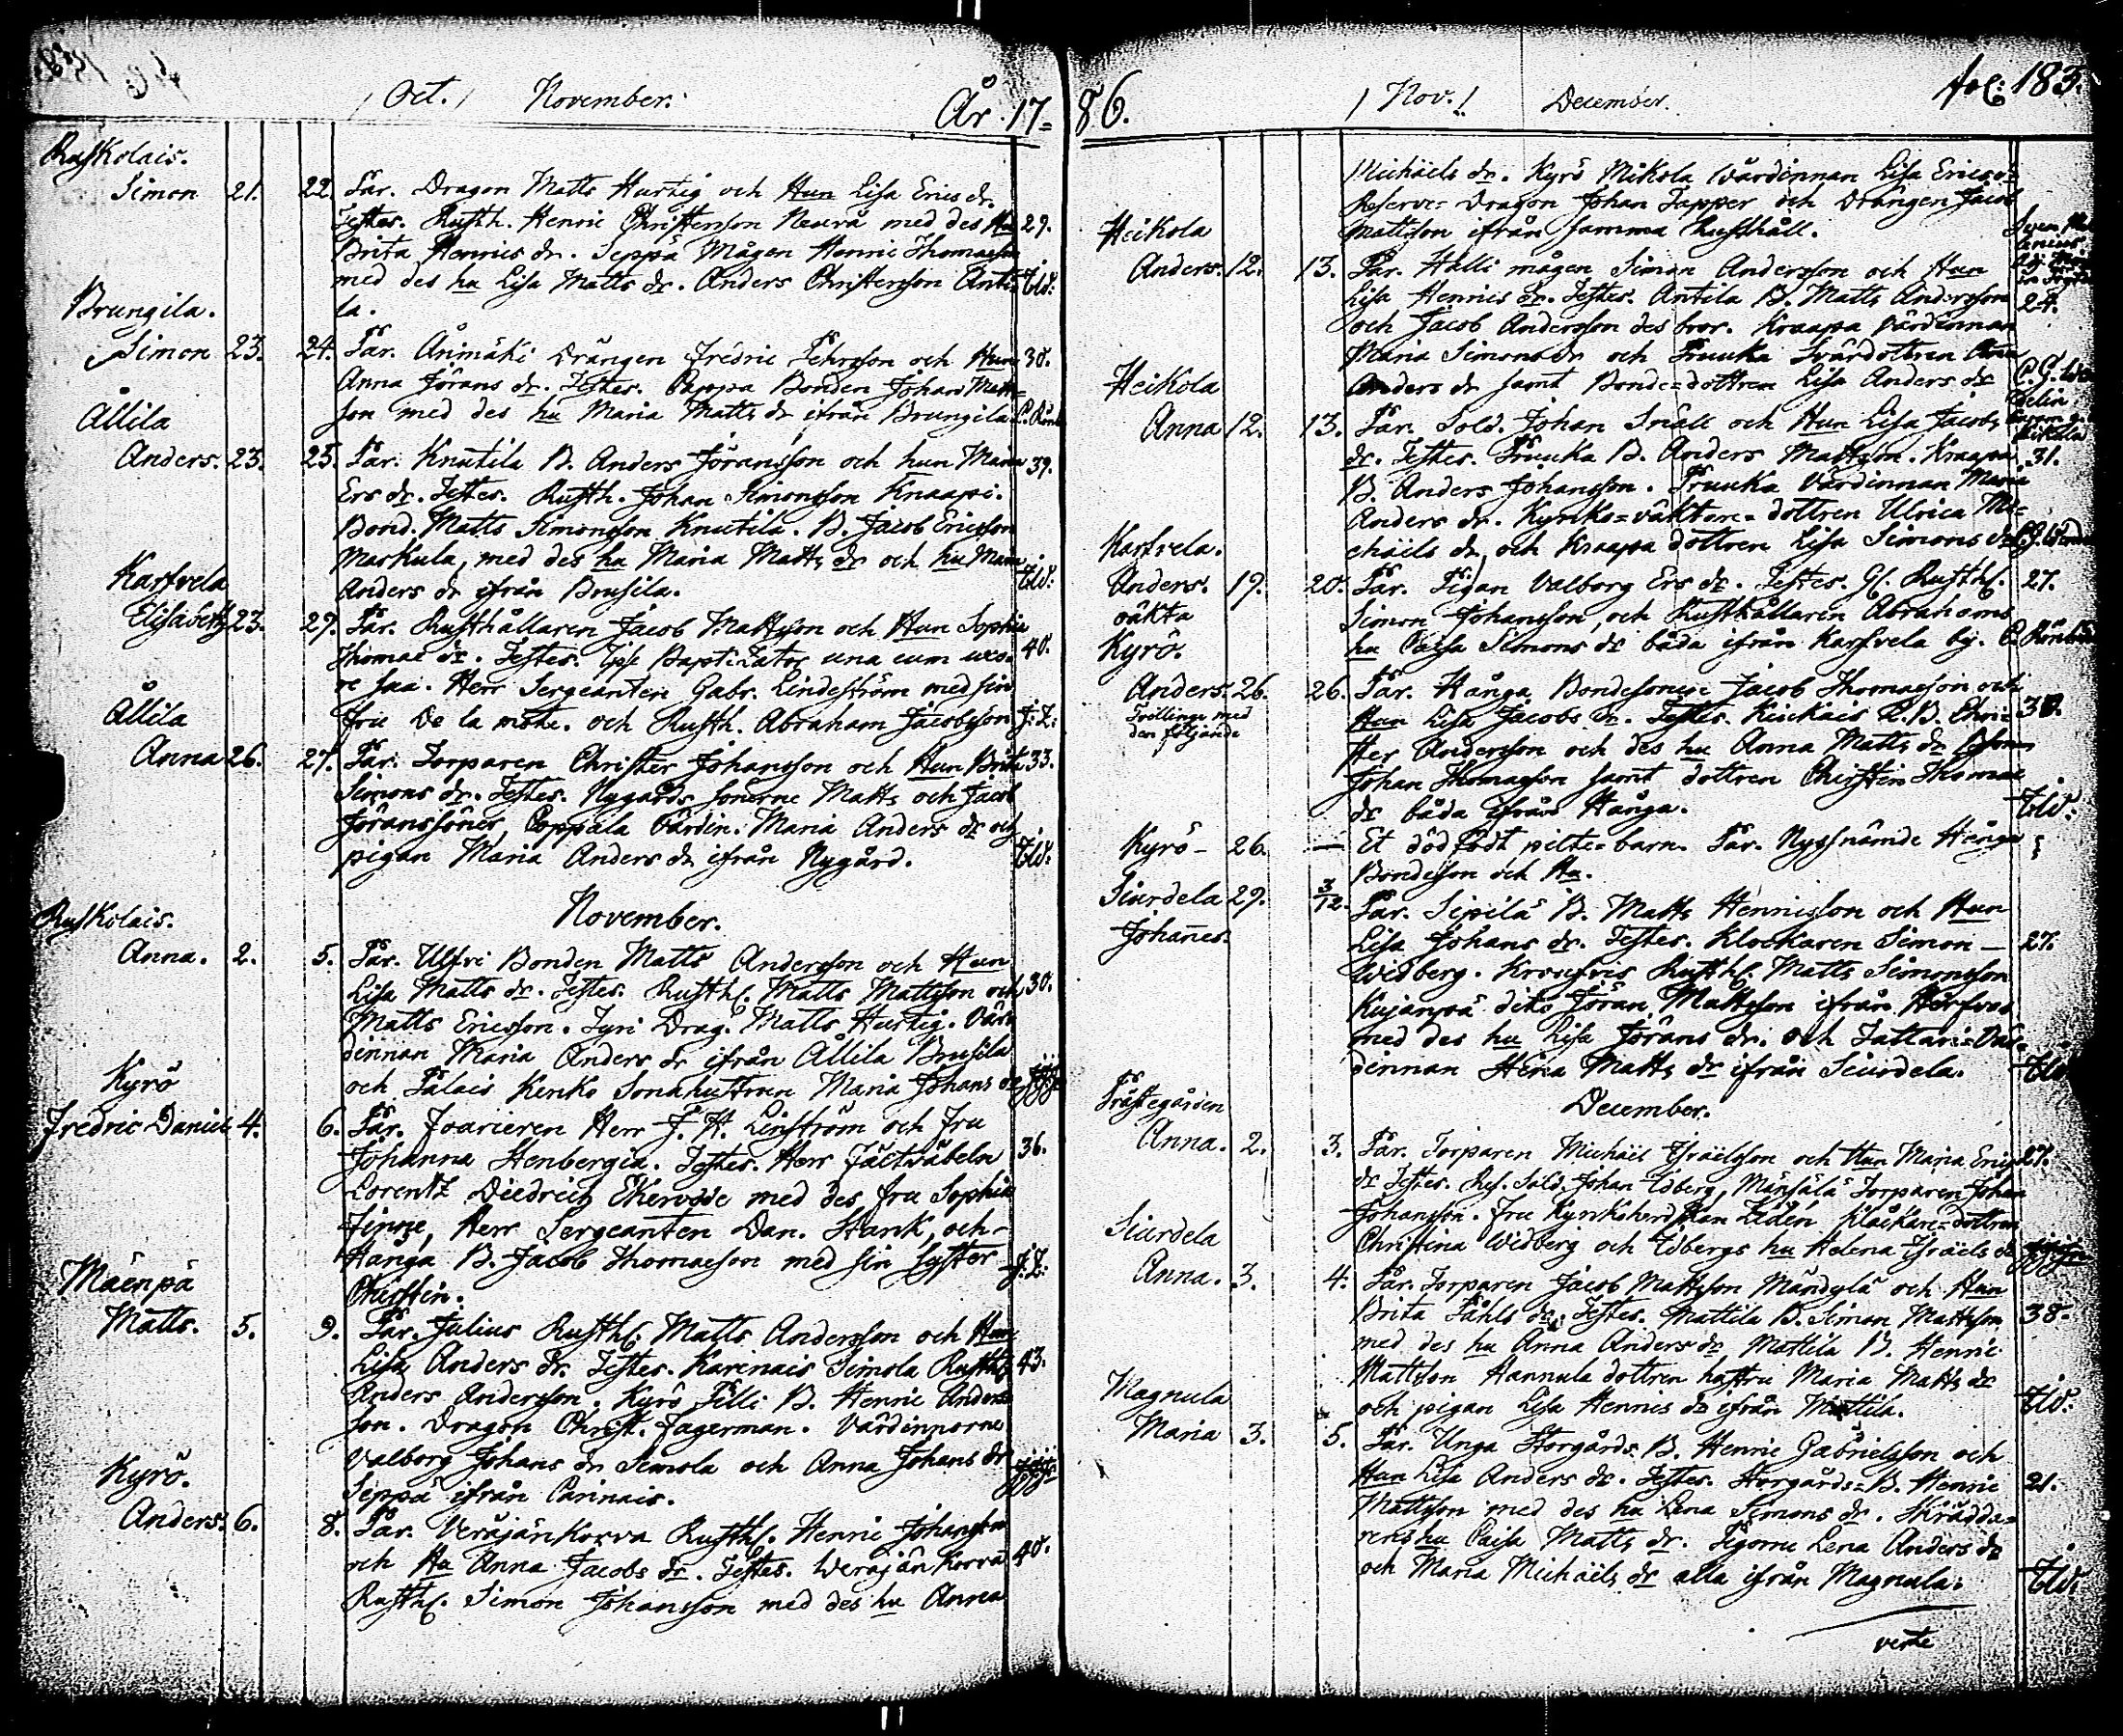 / Oct. / November. År 17=
Ruskolais.
Simon 21. 22. Par. Dragon Matts Hurtig och Hun Lisa Erics dr.
Testes. Rusth. Henric Christersson Neuvå med des Hu 29.
Brita Henrics dr. Seppä Mågen Henric Thomasson
med des hu Lisa Matts dr. Anders Christersson Anti=
la.
Brungila.
Simon 23. 24. Par. Änimäki Drängen Fredric Pehrsson och Hun 30.
Anna Jörans dr. Testes. Pappa Bonden Johan Matts=
son med des hu Maria Matts dr ifrån Brungila.
Ållila
Anders. 23. 25. Par. Knutila B. Anders Jöransson och hun Maria 39.
Ers dr. Testes. Rusth. Johan Simonsson Knaapi.
Bond. Matts Simonsson Knutila. B. Jacob Ericsson
Markula, med des hu Maria Matts dr och hu Maria
Anders dr ifrån Brusila.
Karfvela
Elisabeth 23. 29. Par. Rusthållaren Jacob Mattsson och Hun Sophia
Thomae dr. Testes. Ipse Baptizator una cum uxo= 40.
re sua. Herr Sergeanten Gabr. Lindeström med sin
fru De la motte. och Rusth. Abraham Jacobsson. J: L:
Ållila
Anna 26. 27. Par. Torparen Christer Johansson och Hun Brita 33.
Simons dr. Testes. Nygårds sönerne Matts och Jacob
Jöranssöner, Poppala Värdin: Maria Anders dr och
pigan Maria Anders dr ifrån Nygård.
November.
Ruskolais.
Anna. 2. 5. Par. Ulfvi Bonden Matts Andersson och Hun
Lisa Matts dr. Testes. Rusthl. Matts Mattsson och 30.
Matts Ericsson. Tyri Drag. Matts Hurtig. Vär=
dinnan Maria Anders dr ifrån Ållila Brusila
och Palais Kenko Sonahustrun Maria Johans dr
Kyrö
Fredric Daniel 4. 6. Par. Fourieren Herr J. H. Linström och fru
Johanna Stenbergia. Testes. Herr Fältväbeln 36.
Lorentz Diedrich Ekervde med des fru Sophia
Finne, Herr Sergeanten Dan. Stark, och
Hånga B. Jacob Thomasson med sin Syster J: L:
Christin.
Mäenpä
Matts. 5. 9. Par. Julius Rusthl. Matts Andersson och Hun
Lisa Anders dr. Testes. Karinais Simola Rusthl. 43.
Anders Andersson. Kyrö Pilli B. Henric Anders
son. Dragon Christ. Fagerman. Värdinnorne
Valborg Johans dr Simola och Anna Johans dr
Seppä ifrån Carinais.
Kyrö.
Anders. 6. 8. Par. Veräjänkorva Rusthl. Henric Johansson
och Hu Anna Jacobs dr. Testes. Weräjänkorva 40.
Rusthl. Simon Johansson med des hu Anna
86. / Nov. / December. fol: 183.
Michäels dr. Kyrö Mikola Värdinnan Lisa Erics dr
Reserve= Dragon Johan Tapper och Drängen Jacob
Mattsson ifrån samma Rusthåll.
Heikola
Anders. 12. 13. Par. Halli mågen Simon Andersson och Hun
Lisa Henrics dr. Testes. Antila B. Matts Andersson 24.
och Jacob Andersson des bror. Kraapa Värdinnan
Maria Simons dr och Pruuka Svärdottren Anna
Anders dr samt Bonde=dottren Lisa Anders dr
Heikola
Anna 12. 13. Par. Sold. Johan Snäll och Hun Lisa Jacobs
dr. Testes. Pruuka B. Anders Mattsson. Kraapa 31.
B. Anders Johansson. Pruuka Värdinnan Maria
Anders dr. Kyrko=väktare= dottren Ulrica Mi=
chäels dr, och Kraapa dottren Lisa Simons dr
Karfvela.
Anders. 19. 20. Par. Pigan Valborg Ers dr. Testes. Gl. Rusthl. 27.
oäkta Simon Johansson, och Rusthållaren Abrahams
hu Caisa Simons dr båda ifrån Karfvela by.
Kyrö.
Anders. 26. 26. Par. Hånga Bondesonen Jacob Thomasson och
Tvillinge med Hun Lisa Jacobs dr. Testes. Kiukais R. B. Chri= 30.
den följande
ster Andersson och des hu Anna Matts dr Sonen
Johan Thomasson samt dottren Christin Thomae
dr båda ifrån Hånga.
Kyrö - 26. — Et dödfödt pilte=barn. Par. Nyssnämde Hånga
Bondeson och Hu.
Siurdela 29. 3/12. Par. Sipilä B. Matts Henrisson och Hun
Johannes. Lisa Johans dr. Testes. Klockaren Simon — 27.
Widberg. Rusthl. Matts Simonsson
Kujanpä dito Jöran Mattsson ifrån
med des hu Lisa Jörans dr. och Tattari=Vär=
dinnan Stina Matts dr ifrån Siurdela.
December.
Prästegården
Anna. 2. 3. Par. Torparen Michäel Israelsson och Hun Maria Erics 27.
dr Testes. Res. Sold. Johan Edberg, Mänsälä Torparen Johan
Johansson. Fru Kyrkoherdskan Lidén Klåckare=dottren
Christina Widberg och Edbergs hu Helena Israels dr
Siurdela
Anna. 3. 4. Par. Torparen Jacob Mattsson Mändylä och Hun
Brita Påhls dr. Testes. Mattila B. Simon Mattsson 38.
med des hu Anna Anders dr Mattila B. Henric
Mattsson Hannula dottren hustru Maria Matts dr
och pigan Lisa Henrics dr ifrån Mattila.
Magnula
Maria 3. 5. Par. Unga Storgårds B. Henric Gabrielsson och
Hun Lisa Anders dr. Testes. Storgårds=B. Henric 21.
Mattsson med des hu Lena Simons dr. Skrädda=
rens hu Caisa Matts dr. Pigorne Lena Anders dr
och Maria Michäels dr alla ifrån Magnula.
verte